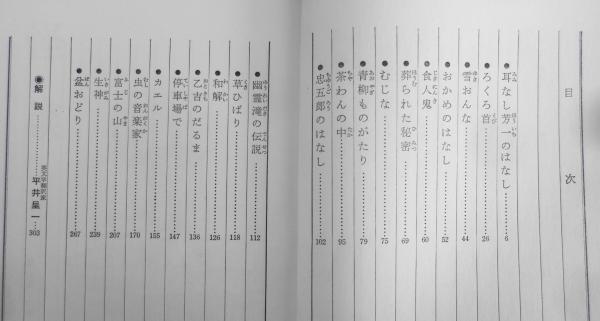 目次
●耳なし芳一のはなし……6
●ろくろ首……26
●雪おんな……44
●おかめのはなし……52
●食人鬼……60
●葬られた秘密……69
●むじな……75
●青柳ものがたり……79
●茶わんの中……95
●忠五郎のはなし……102
●幽霊滝の伝説……112
●草ひばり……118
●和解……126
●乙吉のだるま……136
●停車場で……147
●カエル……155
●虫の音楽家……170
●富士の山……207
●生神……239
●盆おどり……267
●解説……英文学翻訳家 平井呈一……303